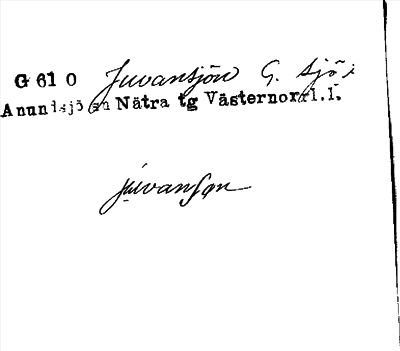 G 61 0 Juvansjön G. sjö i
Anundsjö sn Nätra tg Västernorrl.l.
juvanson